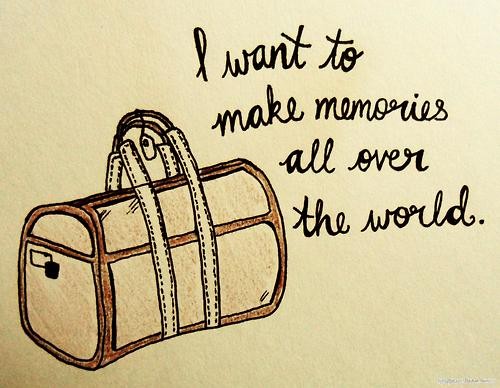 I want to
make memories
all over
the world.